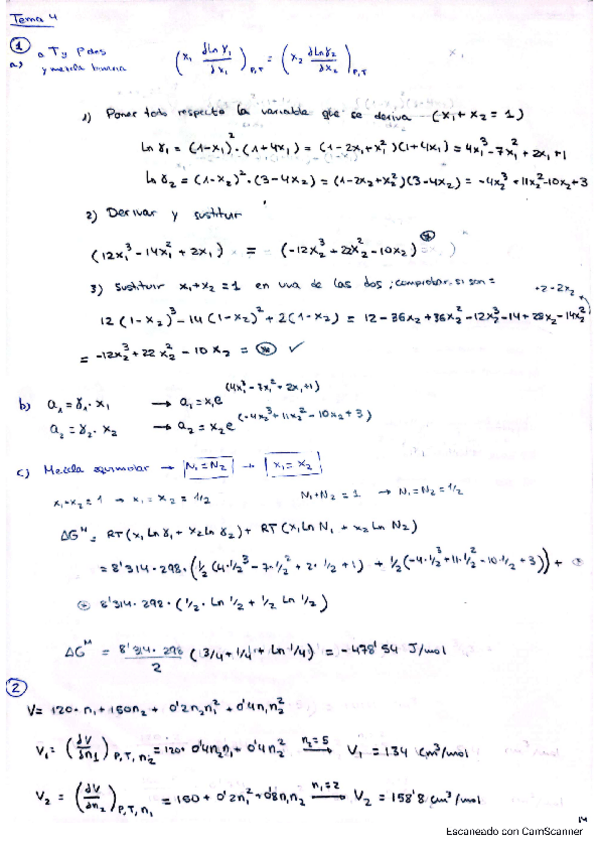 Tema 4
① a T y P ctes
a) y mezcla binaria (x₁ ∂Ln γ₁/∂x₁)P,T = (x₂ ∂Ln γ₂/∂x₂)P,T x₁
1) Poner todo respecto la variable que se deriva (x₁+x₂ = 1)
Ln γ₁ = (1-x₁)²·(1+4x₁) = (1-2x₁+x₁²)(1+4x₁) = 4x₁³-7x₁²+2x₁+1
Ln γ₂ = (1-x₂)²·(3-4x₂) = (1-2x₂+x₂²)(3-4x₂) = -4x₂³+11x₂²-10x₂+3
2) Derivar y sustituir
(12x₁³-14x₁²+2x₁) = (-12x₂³+22x₂²-10x₂)
3) Sustituir x₁+x₂=1 en una de las dos ; comprobar si son = +2-2x₂
12(1-x₂)³-14(1-x₂)²+2(1-x₂) = 12-36x₂+36x₂²-12x₂³-14+28x₂-14x₂²
= -12x₂³+22x₂²-10x₂ = ⊛ ✓
b) a₁=γ₁·x₁ → a₁=x₁e^(4x₁³-7x₁²+2x₁+1)
a₂=γ₂·x₂ → a₂=x₂e^(-4x₂³+11x₂²-10x₂+3)
c) Mezcla equimolar → N₁=N₂ → x₁=x₂
x₁+x₂=1 → x₁=x₂=1/2 N₁+N₂=1 → N₁=N₂=1/2
ΔGᴹ= RT(x₁Lnγ₁+x₂Lnγ₂)+RT(x₁LnN₁+x₂LnN₂)
=8'314·298·(1/2(4·1/2³-7·1/2²+2·1/2+1) + 1/2(-4·1/2³+11·1/2²-10·1/2+3))+
8'314·298·(1/2·Ln1/2+1/2Ln1/2)
ΔGᴹ = 8'314·298/2 (3/4+1/4+Ln1/4) = -478'54 J/mol
②
V= 120·n₁+150n₂+0'2n₂n₁²+0'4n₁n₂²
V₁=(∂V/∂n₁)P,T,n₂=120+0'4n₂n₁+0'4n₂² n₂=5→ V₁=134 cm³/mol
V₂=(∂V/∂n₂)P,T,n₁=150+0'2n₁²+0'8n₁n₂ n₁=2→ V₂=158'8 cm³/mol
14
Escaneado con CamScanner